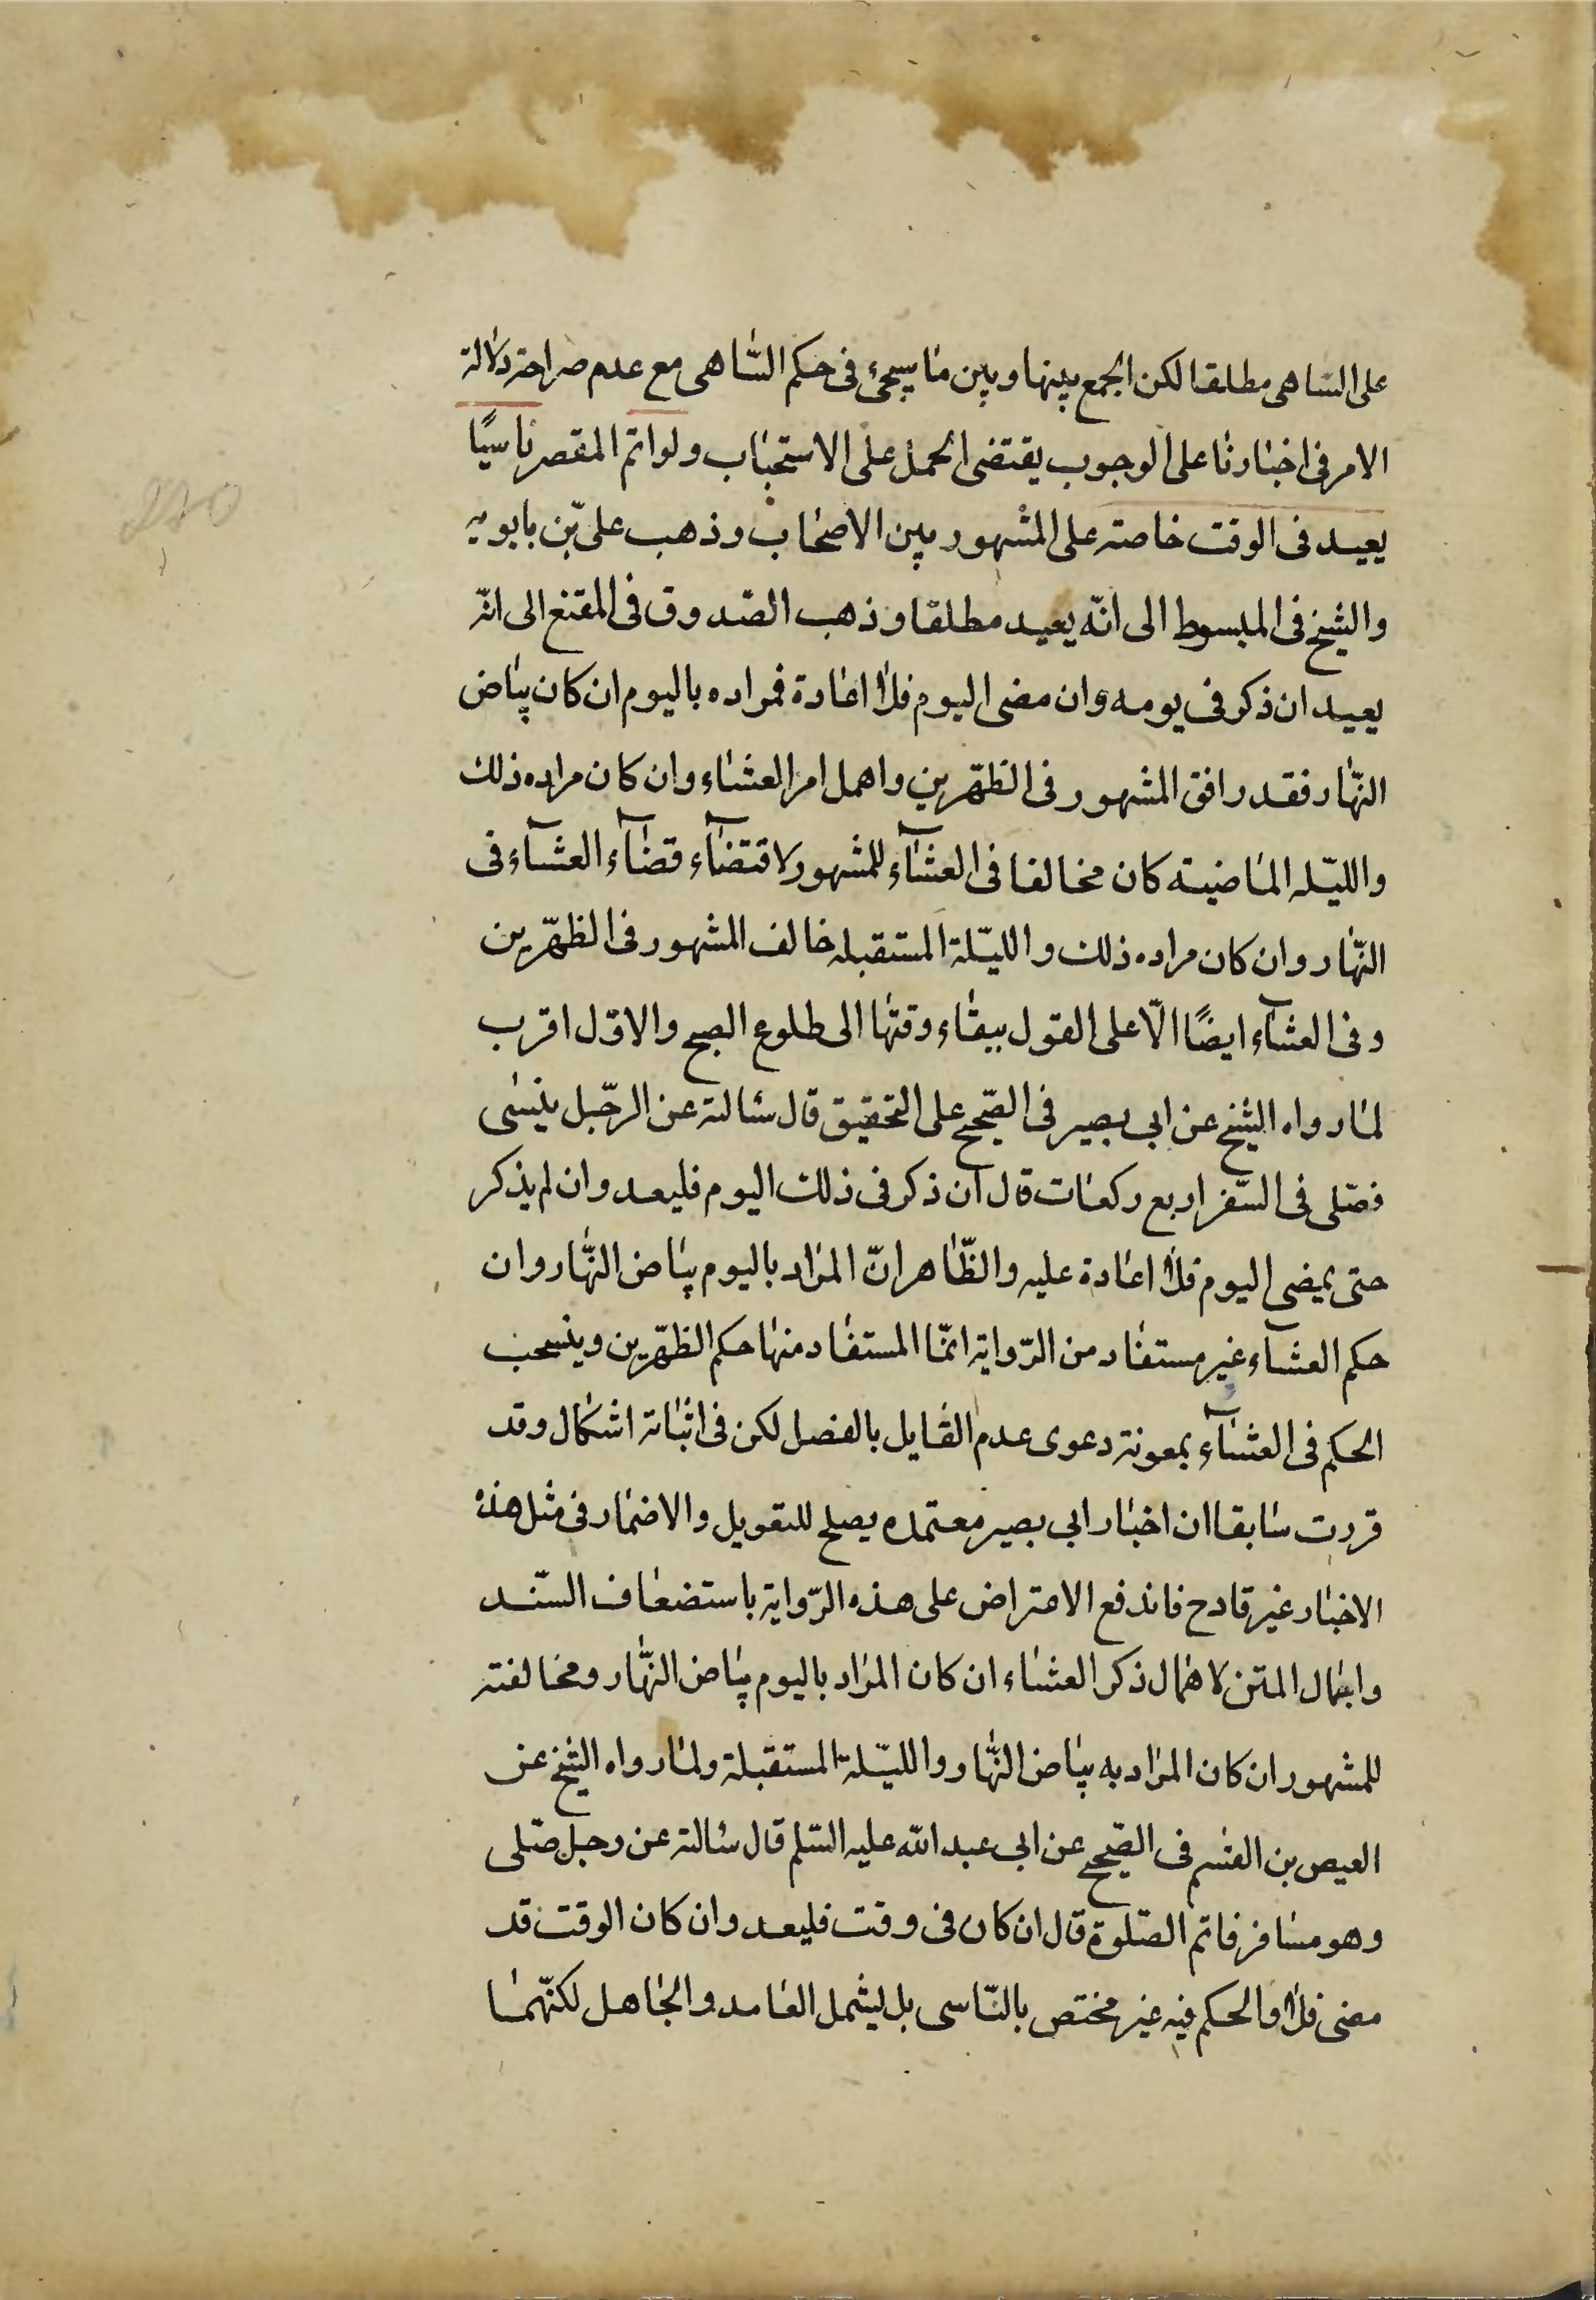 على الساهى مطلقا لكن الجمع بينها وبين ما يجىء فى حكم السّاهى مع عدم صراحة دلالة
الامر فى اخبارنا على الوجوب يقتضى الحمل على الاستحباب ولو اتم المقصر ناسيًا
يعيد فى الوقت خاصة على المشهور بين الاصحاب وذهب علىّ بن بابويه
والشيخ فى المبسوط الى انّه يعيد مطلقا وذهب الصّدوق فى المقنع الى انّه
يعيد ان ذكر فى يومه وان مضى اليوم فلا اعادة فمراده باليوم ان كان بياض
النّهار فقد وافق المشهور فى الظّهرين واهمل امر العشاء وان كان مراده ذلك
والليّله الماضية كان مخالفا فى العشآء للمشهور لاقتضآء قضآء العشآء فى
النّهار وان كان مراده ذلك والليّلة المستقبله خالف المشهور فى الظهّرين
وفى العشآء ايضًا الّا على القول ببقاء وقتها الى طلوع الصبح والاوّل اقرب
لما رواه الشيخ عن ابى بصير فى الصّحيح على التحقيق قال سئالته عن الرجّل ينسى
فصّلى فى السّفر اربع ركعات قال ان ذكر فى ذلك اليوم فليعد وان لم يذكر
حتى يمضى اليوم فلا اعادة عليه والظّاهر انّ المراد باليوم بياض النّهار وان
حكم العشآء غير مستفاد من الرّواية انمّا المستفاد منها حكم الظهّرين وينسحب
الحكم فى العشآء بمعونة دعوى عدم القايل بالفصل لكن فى اثباته اشكال وقد
قررت سابقا ان اخبار ابى بصير معتمده يصلح للتعويل والاضمار فى مثل هذه
الاخبار غير قادح فاندفع الاعتراض على هذه الرّواية باستضعاف السّند
واجمال المتن لاهمال ذكر العشاء ان كان المراد باليوم بياض النّهار ومخالفته
للمشهور ان كان المراد به بياض النّهار والليّلة المستقبلة ولما رواه الشيخ عن
العيص بن القسم فى الصّحيح عن ابى عبد الله عليه السّلم قال سئالته عن رجل صّلى
وهو مسافر فاتم الصّلوة قال ان كان فى وقت فليعد وان كان الوقت قد
مضى فلا والحكم فيه غير مختص بالنّاسى بل يشمل العامد والجاهل لكنّهما